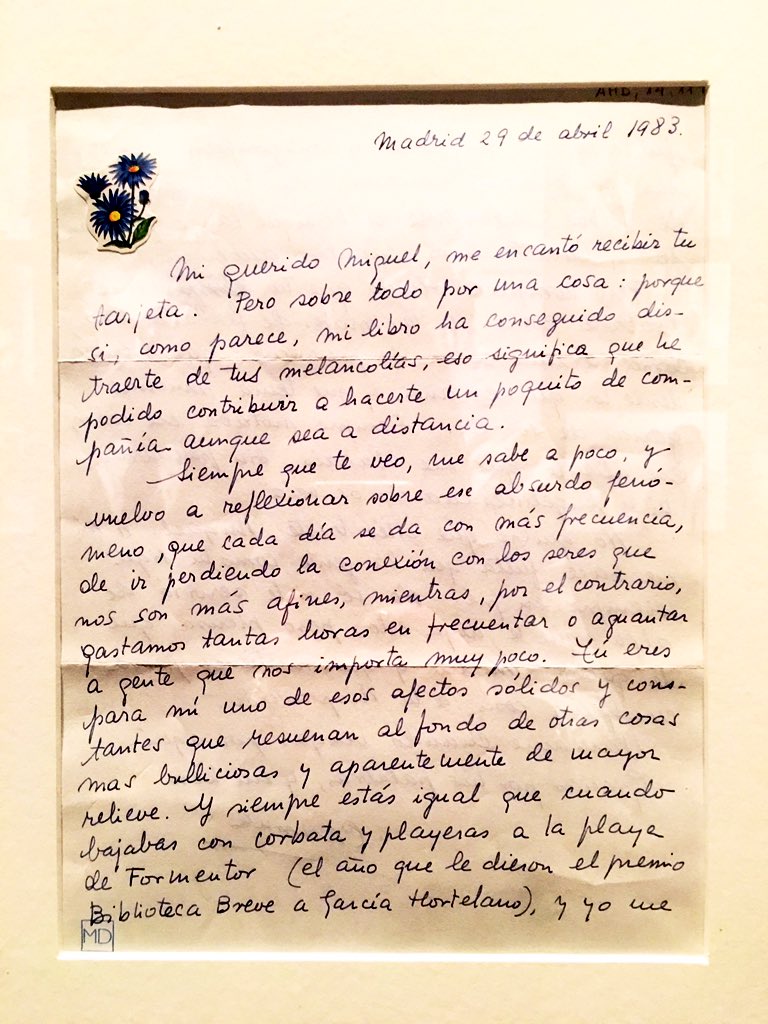 AMD, 14.11
Madrid 29 de abril 1983.
Mi querido Miguel, me encantó recibir tu
tarjeta. Pero sobre todo por una cosa: porque
si, como parece, mi libro ha conseguido dis-
traerte de tus melancolías, eso significa que he
podido contribuir a hacerte un poquito de com-
pañía aunque sea a distancia.
Siempre que te veo, me sabe a poco, y
vuelvo a reflexionar sobre ese absurdo fenó-
meno, que cada día se da con más frecuencia,
de ir perdiendo la conexión con los seres que
nos son más afines, mientras, por el contrario,
gastamos tantas horas en frecuentar o aguantar
a gente que nos importa muy poco. Tú eres
para mí uno de esos afectos sólidos y cons-
tantes que resuenan al fondo de otras cosas
mas bulliciosas y aparentemente de mayor
relieve. Y siempre estás igual que cuando
bajabas con corbata y playeras a la playa
de Formentor (el año que le dieron el premio
Biblioteca Breve a García Hortelano), y yo me
MD